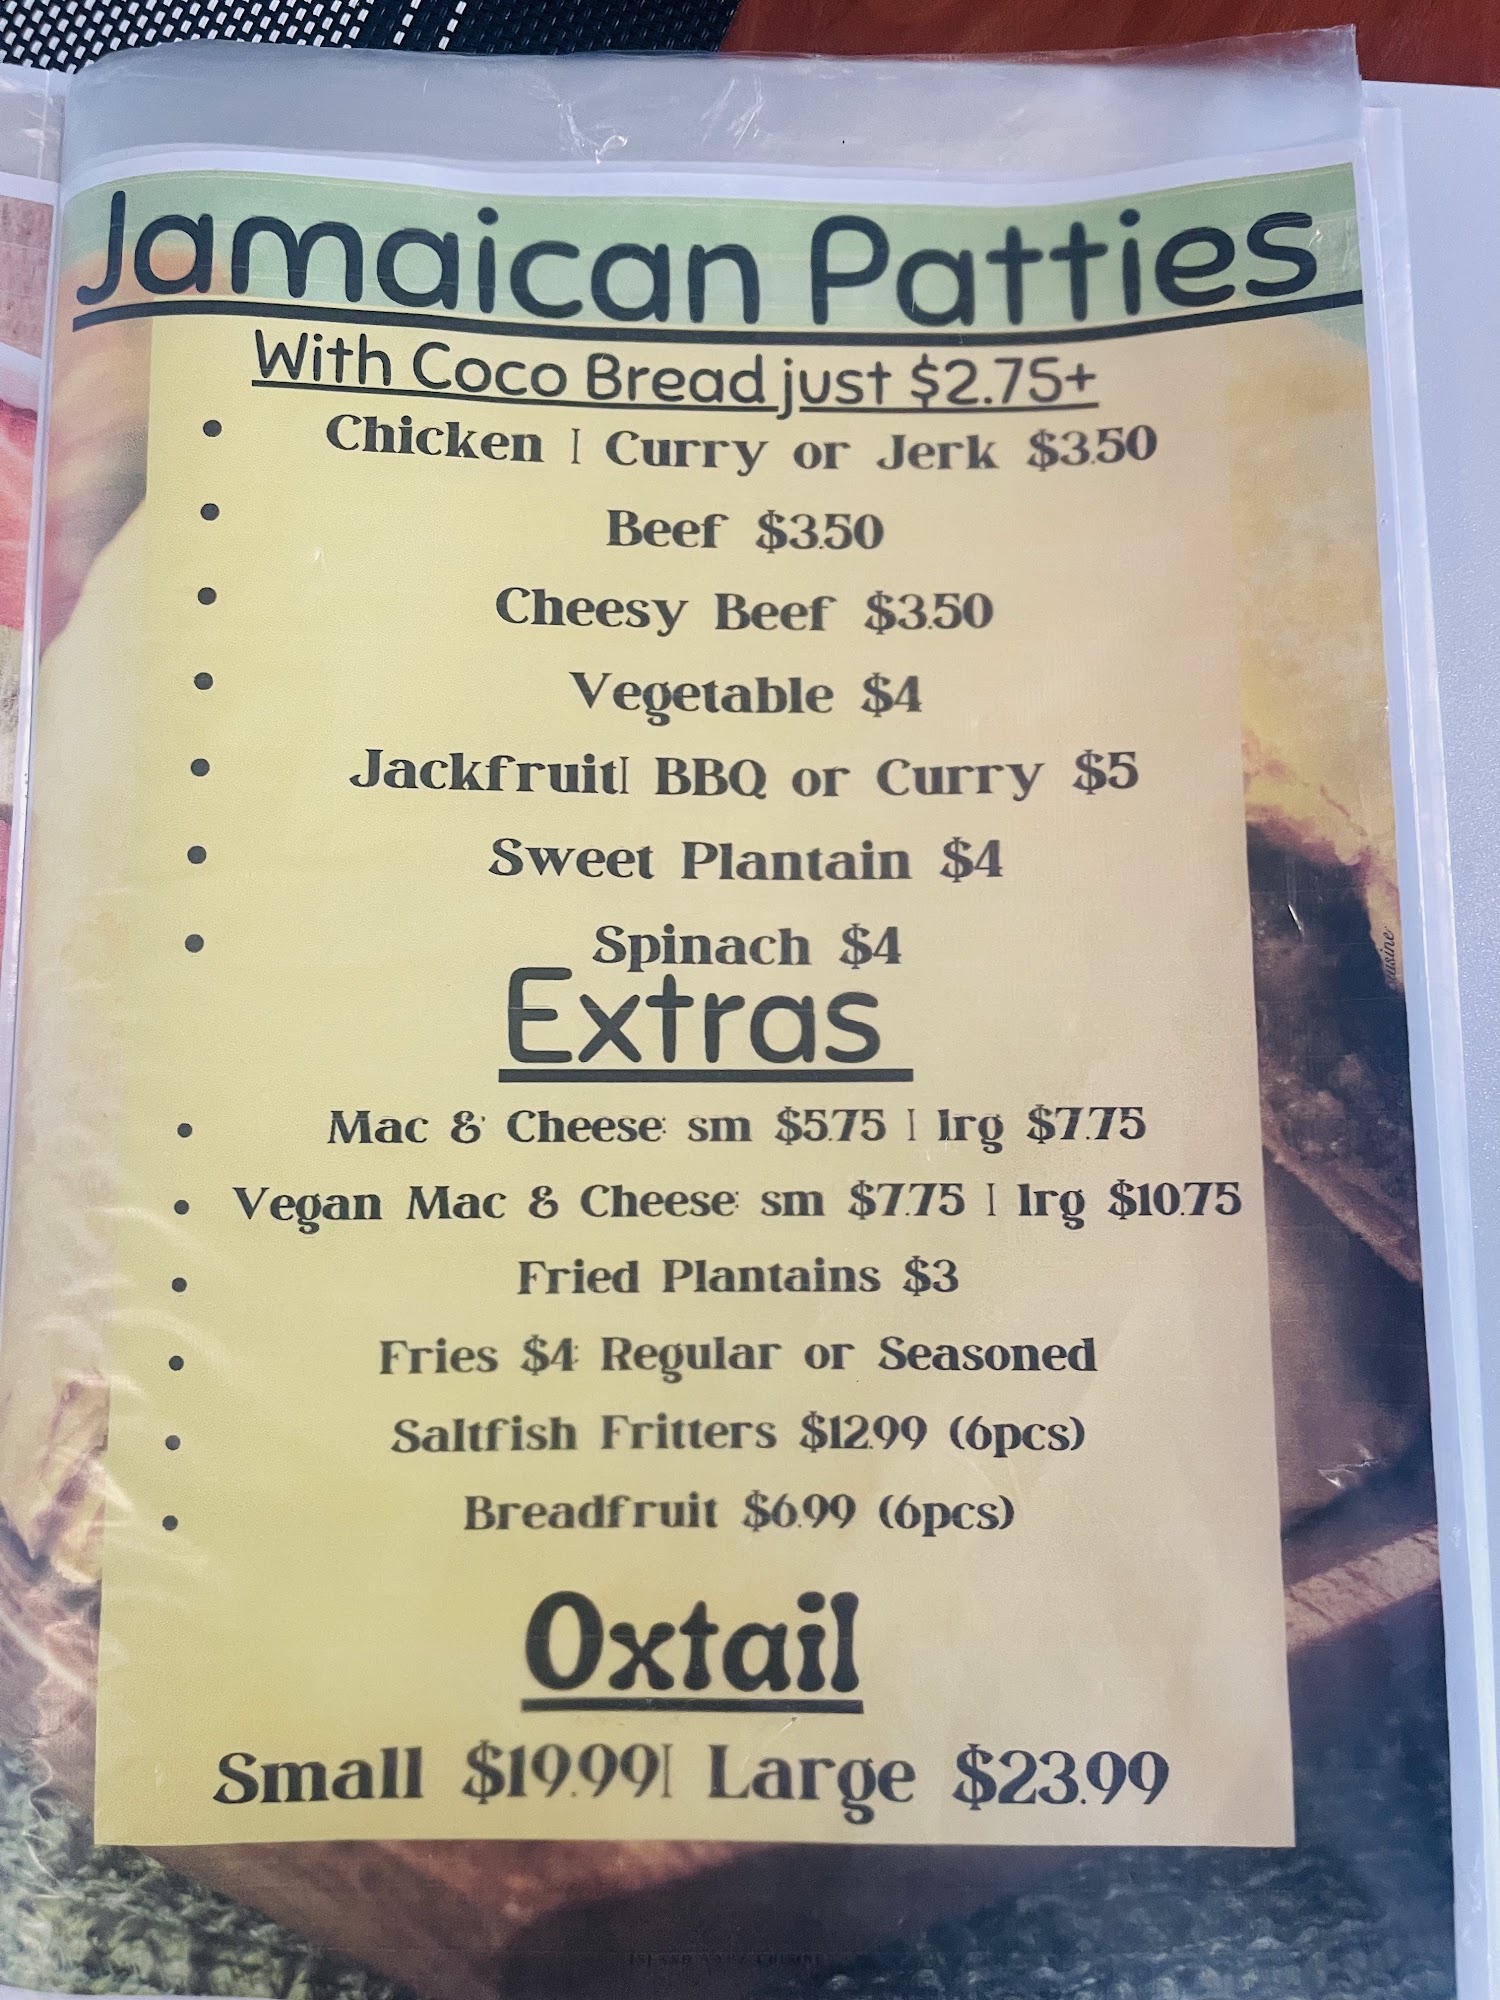 Jamaican Patties
With Coco Bread just $2.75+
• Chicken | Curry or Jerk $3.50
• Beef $3.50
• Cheesy Beef $3.50
• Vegetable $4
• Jackfruit| BBQ or Curry $5
• Sweet Plantain $4
• Spinach $4
Extras
• Mac & Cheese: sm $5.75 | lrg $7.75
• Vegan Mac & Cheese: sm $7.75 | lrg $10.75
• Fried Plantains $3
• Fries $4: Regular or Seasoned
• Saltfish Fritters $12.99 (6pcs)
• Breadfruit $6.99 (6pcs)
Oxtail
Small $19.99| Large $23.99